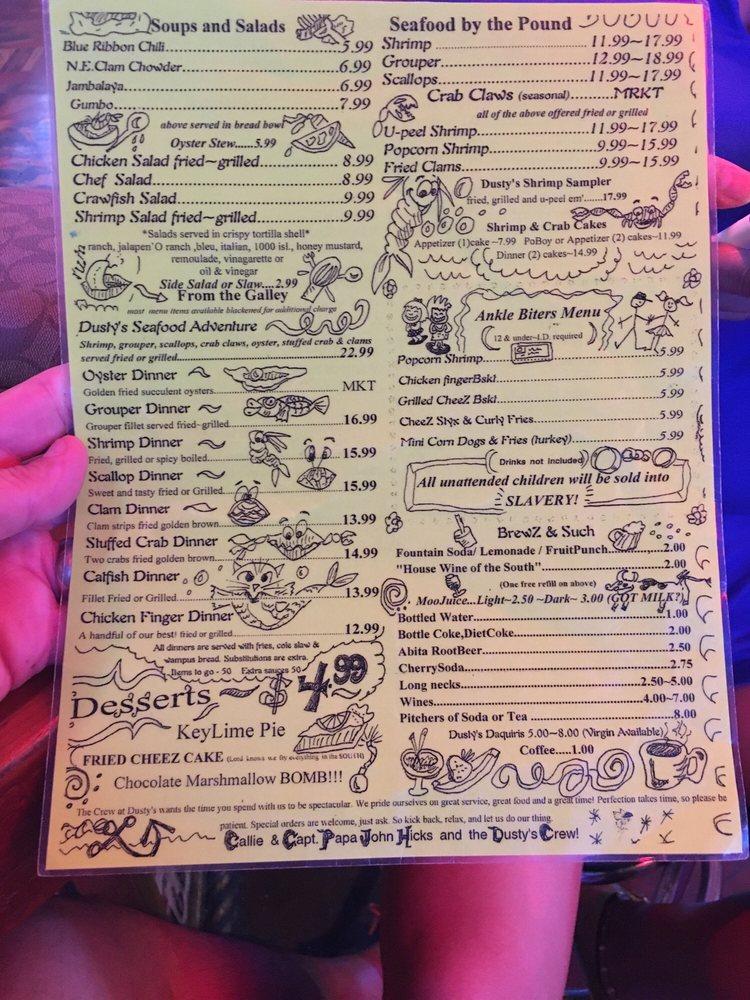 Soups and Salads
Blue Ribbon Chili 5.99
N.E.Clam Chowder 6.99
Jambalaya 6.99
Gumbo 7.99
above served in bread bowl
Oyster Stew.....5.99
Chicken Salad fried~grilled 8.99
Chef Salad 8.99
Crawfish Salad 9.99
Shrimp Salad fried~grilled 9.99
*Salads served in crispy tortilla shell*
ranch, jalapen`O ranch ,bleu, italian, 1000 isl., honey mustard,
remoulade, vinagarette or
oil & vinegar
Side Salad or Slaw....2.99
From the Galley
most menu items available blackened for additional charge
Dusty's Seafood Adventure
Shrimp, grouper, scallops, crab claws, oyster, stuffed crab & clams
served fried or grilled 22.99
Oyster Dinner
Golden fried succulent oysters MKT
Grouper Dinner
Grouper fillet served fried~grilled 16.99
Shrimp Dinner
Fried, grilled or spicy boiled 15.99
Scallop Dinner
Sweet and tasty fried or Grilled 15.99
Clam Dinner
Clam strips fried golden brown 13.99
Stuffed Crab Dinner
Two crabs fried golden brown 14.99
Catfish Dinner
Fillet Fried or Grilled 13.99
Chicken Finger Dinner
A handful of our best! fried or grilled 12.99
All dinners are served with fries, cole slaw &
wampus bread. Substitutions are extra.
Items to go - 50 Extra sauces 50
Desserts $4.99
KeyLime Pie
FRIED CHEEZ CAKE (Lord knows we fry everything in the SOUTH)
Chocolate Marshmallow BOMB!!!
Seafood by the Pound
Shrimp 11.99~17.99
Grouper 12.99~18.99
Scallops 11.99~17.99
Crab Claws (seasonal) MRKT
all of the above offered fried or grilled
U-peel Shrimp 11.99~17.99
Popcorn Shrimp 9.99~15.99
Fried Clams 9.99~15.99
Dusty's Shrimp Sampler
fried, grilled and u-peel em'......17.99
Shrimp & Crab Cakes
Appetizer (1)cake ~7.99 PoBoy or Appetizer (2) cakes~11.99
Dinner (2) cakes~14.99
Ankle Biters Menu
(12 & under~I.D. required)
Popcorn Shrimp 5.99
Chicken fingerBskt 5.99
Grilled CheeZ Bskt 5.99
CheeZ Styx & Curly Fries 5.99
Mini Corn Dogs & Fries (turkey) 5.99
(Drinks not included)
All unattended children will be sold into
SLAVERY!
BrewZ & Such
Fountain Soda/ Lemonade / FruitPunch 2.00
"House Wine of the South" 2.00
(One free refill on above)
MooJuice...Light~2.50 ~Dark~ 3.00 (GOT MILK?)
Bottled Water 1.00
Bottle Coke,DietCoke 2.00
Abita RootBeer 2.50
CherrySoda 2.75
Long necks 2.50~5.00
Wines 4.00~7.00
Pitchers of Soda or Tea 8.00
Dusty's Daquiris 5.00~8.00 (Virgin Available)
Coffee.....1.00
The Crew at Dusty's wants the time you spend with us to be spectacular. We pride ourselves on great service, great food and a great time! Perfection takes time, so please be
patient. Special orders are welcome, just ask. So kick back, relax, and let us do our thing.
Callie & Capt. Papa John Hicks and the Dusty's Crew!